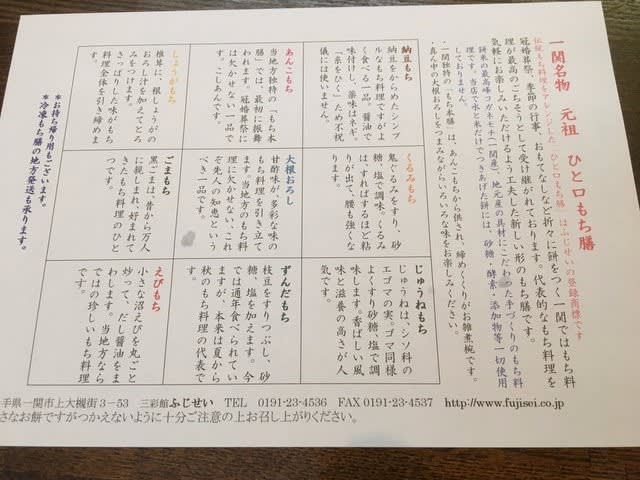 一関名物 元祖 ひと口もち膳
伝統もち料理をアレンジした「ひと口もち膳」はふじせいの登録商標です
冠婚葬祭、季節の行事、おもてなしなど折々に餅をつく一関ではもち料
理が最高のごちそうとして受け継がれております。代表的なもち料理を
気軽にお楽しみいただけるよう工夫した新しい形のもち膳です。
餅米の最高峰コガネモチ(一関産)、地元産の具材にこだわった手づくりのもち料
理です。当店で水と米だけでつきあげた餅には、砂糖・酵素・添加物等一切使用
しておりません。
・一関独特の「もち本膳」は、あんこもちから供され、締めくくりがお雑煮椀です。
・真ん中の大根おろしをつまみながらいろいろな味をお楽しみください。
納豆もち
納豆をからめたシンプ
ルなもち料理ですがよ
く食べる一品。醤油で
味付けし、薬味はネギ。
「糸をひく」ため不祝
儀には使いません。
くるみもち
鬼ぐるみをすり、砂
糖、塩で調味。くるみ
は、すればするほど粘
りが出て、腰も強くな
ります。
じゅうねもち
じゅうねは、シソ科の
エゴマの実。ゴマ同様
よくすり砂糖、塩で調
味します。香ばしい風
味と滋養の高さが人
気です。
あんこもち
当地方独特の「もち本
膳」では、最初に振舞
われます。冠婚葬祭に
は欠かせない一品で
す。こしあんです。
大根おろし
甘酢味が、多彩な味の
もち料理を引き立て
ます。当地方のもち料
理に欠かせない、これ
ぞ先人の知恵という
べき一品です。
ずんだもち
枝豆をすりつぶし、砂
糖、塩を加えます。今
では通年食べられてい
ますが、本来は夏から
秋のもち料理の代表で
す。
しょうがもち
椎茸に、根しょうがの
おろし汁を加えてとろ
みをつけます。
さっぱりした味がもち
料理全体を引き締めま
す。
ごまもち
黒ごまは、昔から万人
に親しまれ、好まれて
きたもち料理のひと
つです。
えびもち
小さな沼えびを丸ごと
炒って、だし醤油をま
わします。当地方なら
ではの珍しいもち料理
です。
*お持ち帰り用もございます。
*冷凍もち膳の地方発送も承ります。
手県一関市上大槻街3-53 三彩館ふじせい TEL 0191-23-4536 FAX 0191-23-4537 http://www.fujisei.co.jp
さなお餅ですがつかえないように十分ご注意の上お召し上がりください。